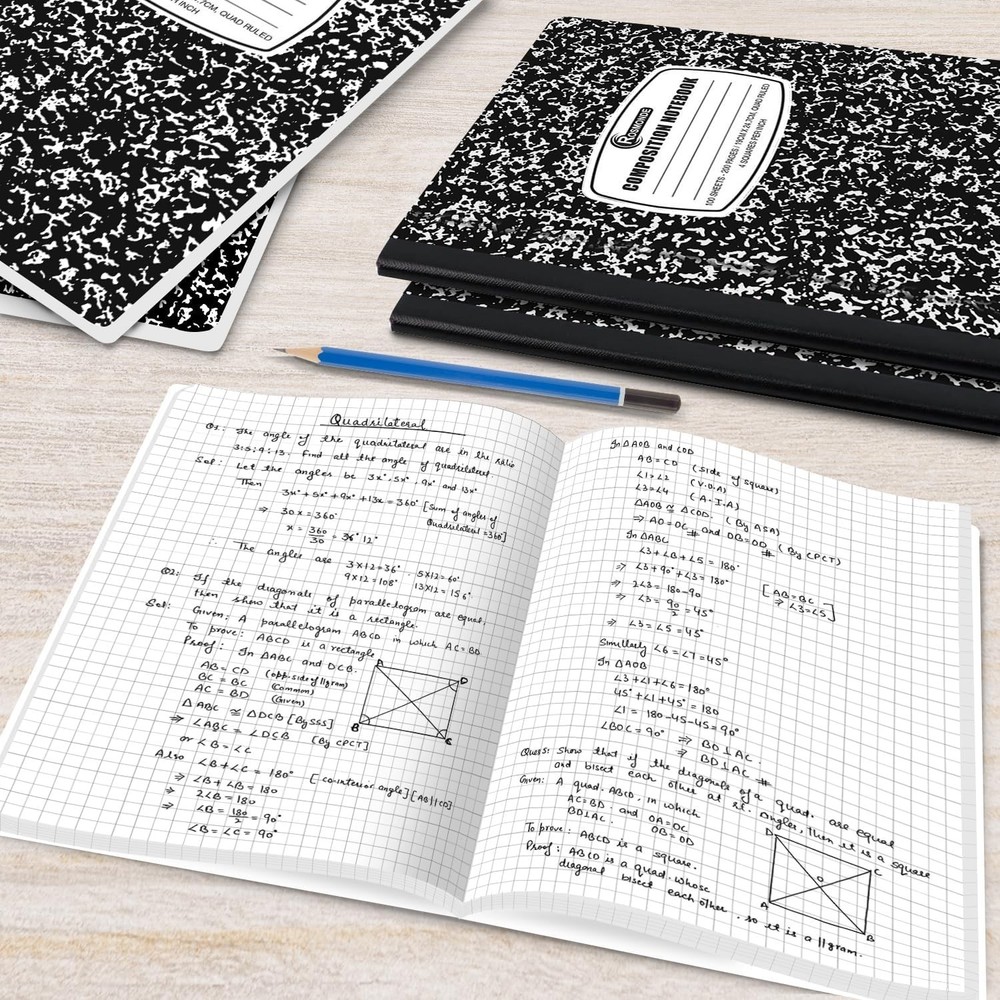 7CM, QUAD RULED
PER INCH
COMPOSITION NOTEBOOK
100 SHEETS - 200 PAGES / 19CM X 24.7CM, QUAD RULED
4 SQUARES PER INCH
Quadrilateral
Q1. The angle of the quadrilateral are in the ratio
3:5:9:13. Find all the angle of quadrilateral.
Sol: Let the angles be 3x°, 5x°, 9x° and 13x°
Then
3x° + 5x° + 9x° + 13x = 360° [Sum of angles of
Quadrilateral = 360°]
⇒ 30x = 360°
x = 360/30 = 12°
∴ The angles are 3×12=36°, 5×12=60°
9×12=108° 13×12=156°
Q2: If the diagonals of parallelogram are equal.
then show that it is a rectangle.
Sol: Given: A parallelogram ABCD in which AC=BD
To prove: ABCD is a rectangle
Proof: In ΔABC and DCB.
AB = CD (opp. side of ||gram)
BC = BC (Common)
AC = BD (Given)
Δ ABC ≅ ΔDCB [By SSS]
⇒ ∠ABC = ∠DCB [By CPCT]
or ∠B = ∠C
Also ∠B + ∠C = 180° [co-interior angle] [AB||CD]
⇒ ∠B + ∠B = 180
⇒ 2∠B = 180
⇒ ∠B = 180/2 = 90°
∠B = ∠C = 90°
A
D
B
C
In ΔAOB and COD
AB = CD (side of square)
∠1 = ∠2 (V.O.A)
∠3 = ∠4 (A.I.A)
ΔAOB ≅ ΔCOD. (By ASA)
⇒ AO = OC # and OB = OD # (By CPCT)
In ΔABC
∠3 + ∠B + ∠5 = 180°
⇒ ∠3 + 90° + ∠3 = 180°
⇒ 2∠3 = 180 - 90 [AB = BC
⇒ ∠3 = 90/2 = 45° ⇒ ∠3 = ∠5]
⇒ ∠3 = ∠5 = 45°
Similarly ∠6 = ∠7 = 45°
In ΔAOB
∠3 + ∠1 + ∠6 = 180°
45° + ∠1 + 45° = 180
∠1 = 180 - 45 - 45 = 90°
∠BOC = 90° ⇒ BD ⊥ AC.
⇒ BD ⊥ AC #
Ques: Show that if the diagonals of a quad. are equal
and bisect each other at rt. angles, then it is a square
Given: A quad. ABCD, in which
AC = BD and OA = OC
BD ⊥ AC. OB = OD
To prove: ABCD is a square.
Proof: ABCD is a quad. whose
diagonal bisect each other. so it is a ||gram.
D
C
O
A
B